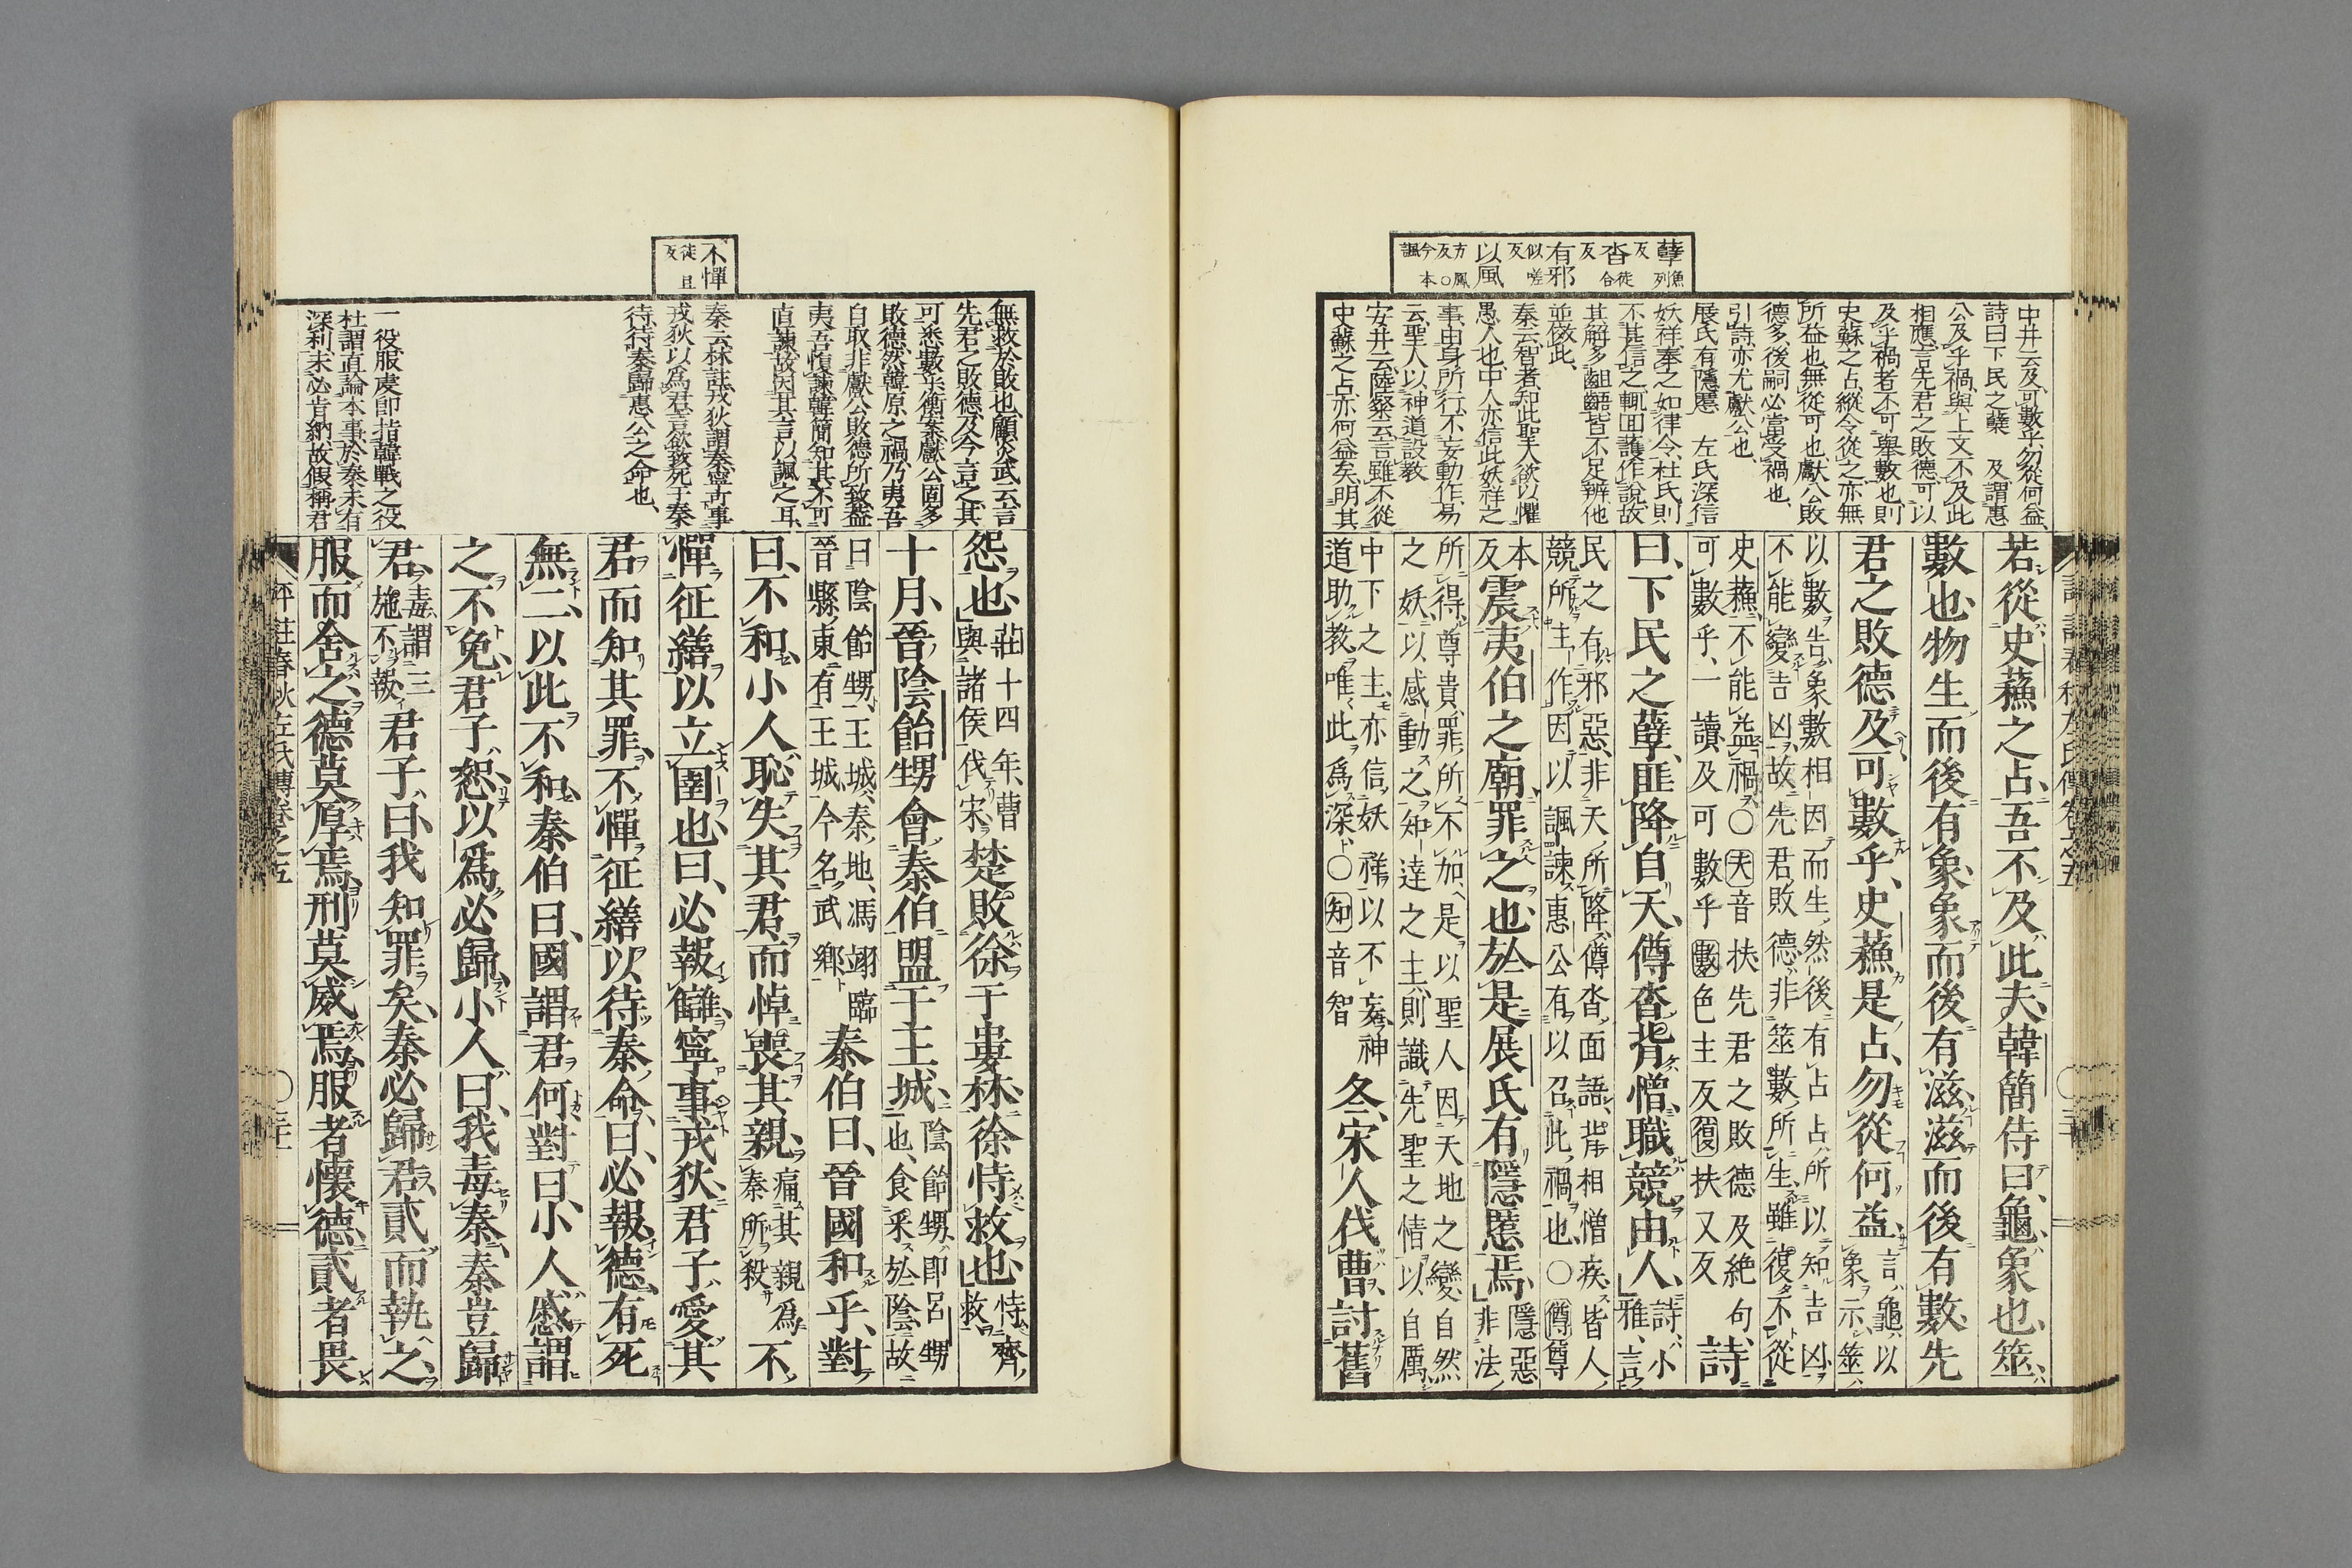 孽魚列反 沓徒合反 有邪似嗟反 以風方鳳反○今本諷
中井云及可數乎勿從何益
詩曰下民之孽 及謂惠
公及乎禍與上文不及此
相應言先君之敗德可以
及乎禍者不可舉數也則
史蘇之占縱令從之亦無
所益也無從可也獻公敗
德多後嗣必當受禍也
引詩亦尤獻公也
展氏有隱慝 左氏深信
妖祥奉之如律令杜氏則
不甚信之輒回護作說故
其解多齟齬皆不足辨他
並倣此
秦云智者知此聖人欲以懼
愚人也中人亦信此妖祥之
事由身所行不妄動作易
云聖人以神道設教
安井云陸粲云言雖不從
史蘇之占亦何益矣明其
若從史蘓之占、吾不及此夫、韓簡侍曰、龜象也、筮
數也、物生而後有象、象而後有滋、滋而後有數、先
君之敗德及可數乎、史蘓是占、勿從何益、言龜以象示筮
以數告象數相因而生然後有占占所以知吉凶
不能變吉凶故先君敗德非筮數所生雖復不從
史蘓不能益禍○夫音扶先君之敗德及絶句、
可數乎、一讀及可數乎數色主反復扶又反詩
曰、下民之孽、匪降自天、僔沓背憎、職競由人、詩小雅、言
民之有邪惡非天所降僔沓面語背相憎疾皆人
競所主作因以諷諫惠公有以召此禍也○僔尊
本反震夷伯之廟、罪之也、於是展氏有隱慝焉、隱惡非法
所得尊貴罪所不加是以聖人因天地之變自然
之妖以感動之知達之主則識先聖之情以自厲
中下之主亦信妖祥以不妄神
道助教唯此爲深○知音智冬、宋人伐曹、討舊
不憚徒旦反
無救於敗也顧炎武云言
先君之敗德及今言之其
可悉數乎衡案獻公固多
敗德然韓原之禍乃夷吾
自取非獻公敗德所致蓋
夷吾愎諫韓簡知其不可
直諫故因其言以諷之耳
秦云林註戎狄謂秦寧古事
戎狄以爲君言欲致死于秦
待待秦歸惠公之命也
一役服虔即指韓戰之役
杜謂直論本事於秦未有
深利未必肯納故假稱君
怨也、莊十四年、曹與諸侯伐宋楚敗徐于婁林、徐恃救也、恃齊救
十月、晉陰飴甥會秦伯盟于王城、陰飴甥即呂甥也、食采於陰故
曰陰飴甥、王城秦地馮翊臨晉縣東有王城今名武鄉秦伯曰、晉國和乎、對
曰、不和、小人恥失其君、而悼喪其親、痛其親爲秦所殺不
憚征繕以立圉也、曰、必報讎、寧事戎狄、君子愛其
君而知其罪、不憚征繕以待秦命、曰、必報德、有死
無二、以此不和、秦伯曰、國謂君何、對曰、小人慼謂
之不免、君子恕以爲必歸、小人曰、我毒秦、秦豈歸
君、毒謂三施不報君子曰、我知罪矣、秦必歸君、貳而執之、
服而舍之、德莫厚焉、刑莫威焉、服者懷德、貳者畏
評註春秋左氏傳卷之五